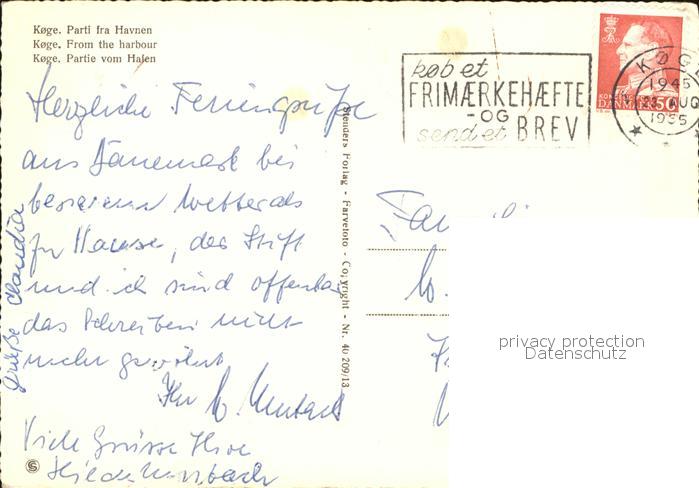 Køge. Parti fra Havnen
Køge. From the harbour
Køge. Partie vom Hafen
købet
FRIMÆRKEHÆFTE
-OG
send et BREV
KØGE
1945
23 AUG
1965
DANMARK 50
Herzliche Feriengrüße
aus Dänemark bei
besserem Wetter als
zu Hause, der Stift
und ich sind offenbar
das Schreiben nicht
mehr gewöhnt
Ihr
Viele Grüsse Ihre
Grüße Claudia
Stenders Forlag - Farvefoto - Copyright - Nr. 40 209/13
privacy protection
Datenschutz